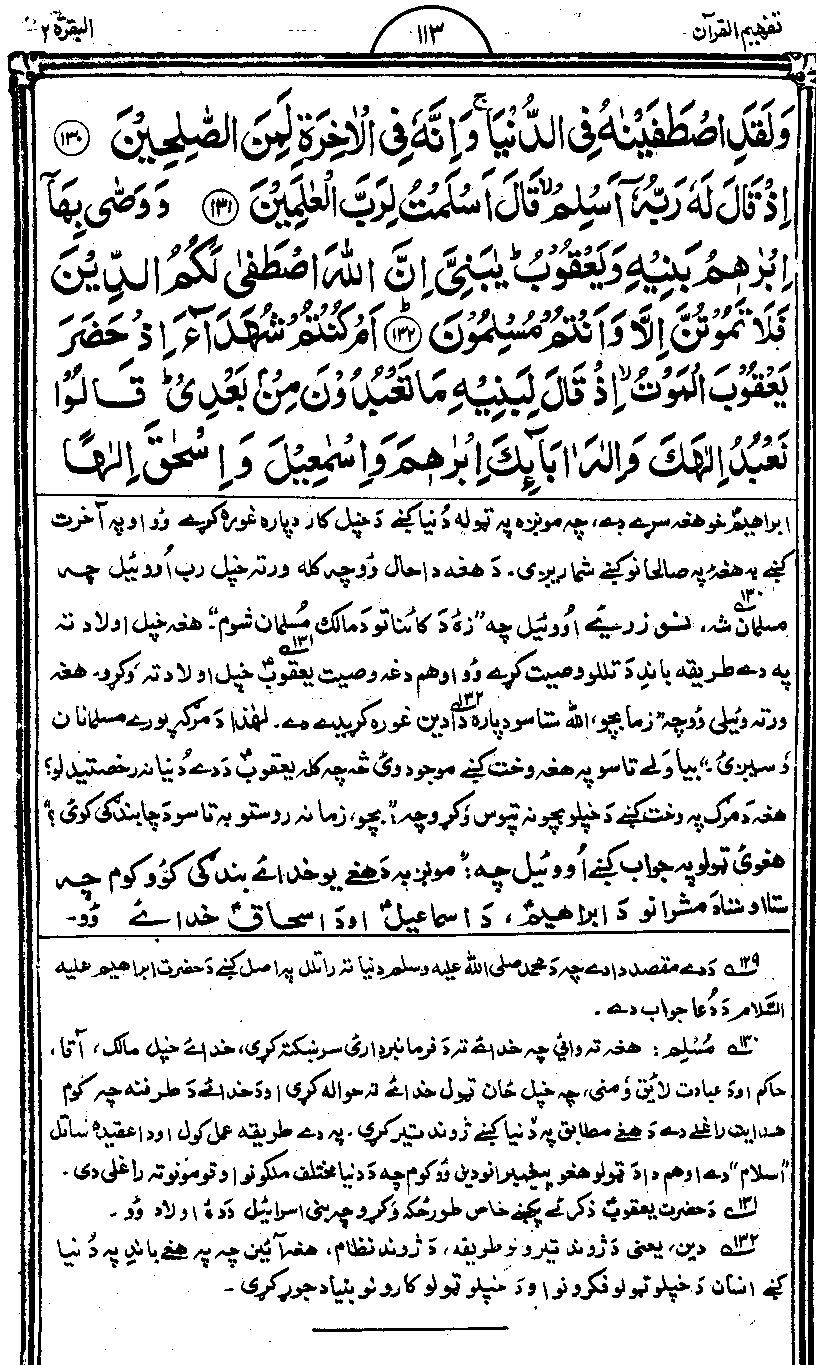 تفهيم القرآن
١١٣
البقرة ٢
وَلَقَدِ اصْطَفَيْنٰهُ فِى الدُّنْيَا ۚ وَاِنَّهٗ فِى الْاٰخِرَةِ لَمِنَ الصّٰلِحِيْنَ ﴿١٣٠﴾
اِذْ قَالَ لَهٗ رَبُّهٗۤ اَسْلِمْ ۙ قَالَ اَسْلَمْتُ لِرَبِّ الْعٰلَمِيْنَ ﴿١٣١﴾ وَوَصّٰى بِهَاۤ
اِبْرٰهٖمُ بَنِيْهِ وَيَعْقُوْبُ ؕ يٰبَنِىَّ اِنَّ اللّٰهَ اصْطَفٰى لَكُمُ الدِّيْنَ
فَلَا تَمُوْتُنَّ اِلَّا وَاَنْتُمْ مُّسْلِمُوْنَ ﴿١٣٢﴾ ؕ اَمْ كُنْتُمْ شُهَدَآءَ اِذْ حَضَرَ
يَعْقُوْبَ الْمَوْتُ ۙ اِذْ قَالَ لِبَنِيْهِ مَا تَعْبُدُوْنَ مِنْۢ بَعْدِىْ ؕ قَالُوْا
نَعْبُدُ اِلٰهَكَ وَاِلٰهَ اٰبَآئِكَ اِبْرٰهٖمَ وَاِسْمٰعِيْلَ وَاِسْحٰقَ اِلٰهًا
ابراهيمؑ خو هغه سړے دے، چه مونږه په ټوله دُنيا کښے دَ خپل کار دپاره غوره کړے وُو او په آخرت
کښے به هغه په صالحانو کښے شمار يږى. دَ هغه دا حال وُو چه کله ورته خپل رب اُووئيل چه
مسلمان شه، نو زر يئے اُووئيل چه "زۀ دَ کائناتو دَ مالک مُسلمان شوم". هغه خپل اولاد ته
په دے طريقه باندِ دَ تللو وصيت کړے وُو او هم دغه وصيت يعقوبؑ خپل اولاد ته وُکړو. هغه
ورته وئيلى وُو چه "زما بچو، الله ستاسو دپاره دا دين غوره کړيدے دے. لهٰذا دَ مرګه پورے مسلمانان
وُسيږئ." بيا ولے تاسو په هغه وخت کښے موجود وئ څه چه کله يعقوبؑ دَ دے دُنيا نه رخصتيدلو؟
هغه دَ مرګ په وخت کښے دَ خپلو بچو نه تپوس وُکړو چه: "بچو، زما نه روستو به تاسو دَ چا بندګى کوئ؟"
هغوئ ټولو په جواب کښے اُووئيل چه: "مونږ به دَ هغے يو خدائے بندګى کوُو کوم چه
ستا او ستا دَ مشرانو دَ ابراهيمؑ، دَ اسماعيلؑ او دَ اسحاقؑ خدائے وُو-
١٢٩ؔ دَ دے مقصد دا دے چه دَ محمد صلى الله عليه وسلم دنيا ته راتلل په اصل کښے دَ حضرت ابراهيم عليه
السَّلام دَ دُعا جواب دے.
١٣٠ؔ مُسْلِم: هغه ته وائي چه خدائے ته دَ فرمانبردارئ سر ښکته کړى، خدائے خپل مالک، آقا،
حاکم او دَ عبادت لائق وُمنى، چه خپل ځان ټول خدائے ته حواله کړى او دَ خدائے دَ طرفنه چه کوم
هدايت راغلے دے دَ هغے مطابق په دُنيا کښے ژوند تير کړى. په دے طريقه عمل کول او دا عقيده ساتل
"اسلام" دے او هم دا دَ ټولو هغو پيغمبرانو دين وُو کوم چه دَ دنيا مختلف ملکونو او قومونو ته راغلى دى.
١٣١ؔ دَ حضرت يعقوبؑ ذکر ئے پکښے خاص طور ځکه وُکړو چه بنى اسرائيل دَ دۀ اولاد وُو-
١٣٢ؔ دين، يعنى دَ ژوند تيرونو طريقه، دَ ژوند نظام، هغه آئين چه په هغے باندِ په دُنيا
کښے انسان دَ خپلو ټولو فکرونو او دَ خپلو ټولو کارونو بنياد جوړ کړى-